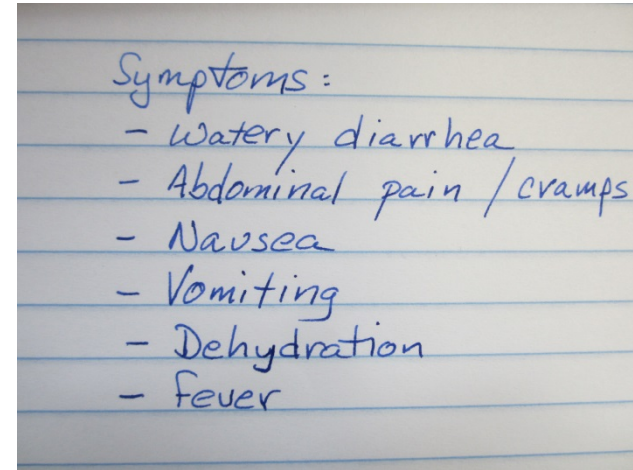 Symptoms:
- Watery diarrhea
- Abdominal pain / cramps
- Nausea
- Vomiting
- Dehydration
- fever